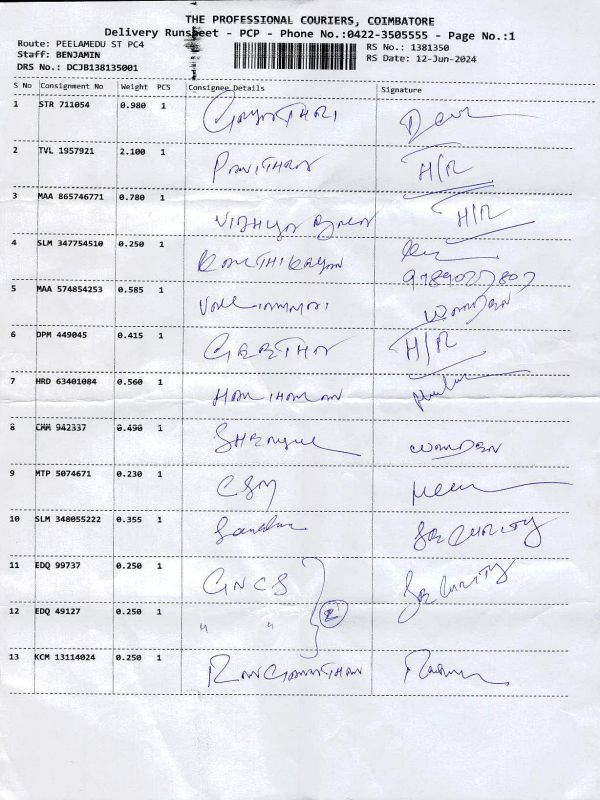 THE PROFESSIONAL COURIERS, COIMBATORE
Delivery Runsheet - PCP - Phone No.:0422-3505555 - Page No.:1
Route: PEELAMEDU ST PC4
Staff: BENJAMIN
DRS No.: DCJB138135001
RS No.: 1381350
RS Date: 12-Jun-2024
S No Consignment No Weight PCS Consignee Details Signature
1 STR 711054 0.980 1 GAYATHRI
2 TVL 1957921 2.100 1 PAVITHRA H/R
3 MAA 865746771 0.780 1 H/R
4 SLM 347754510 0.250 1
5 MAA 574854253 0.585 1 WARDEN
6 DPM 449045 0.415 1 GEETHA H/R
7 HRD 63401084 0.560 1 HARIHARAN
8 CMM 942337 0.490 1 WARDEN
9 MTP 5074671 0.230 1
10 SLM 348055222 0.355 1 SECURITY
11 EDQ 99737 0.250 1 GNCS SECURITY
12 EDQ 49127 0.250 1 " " 2
13 KCM 13114024 0.250 1 RANGANATHAN